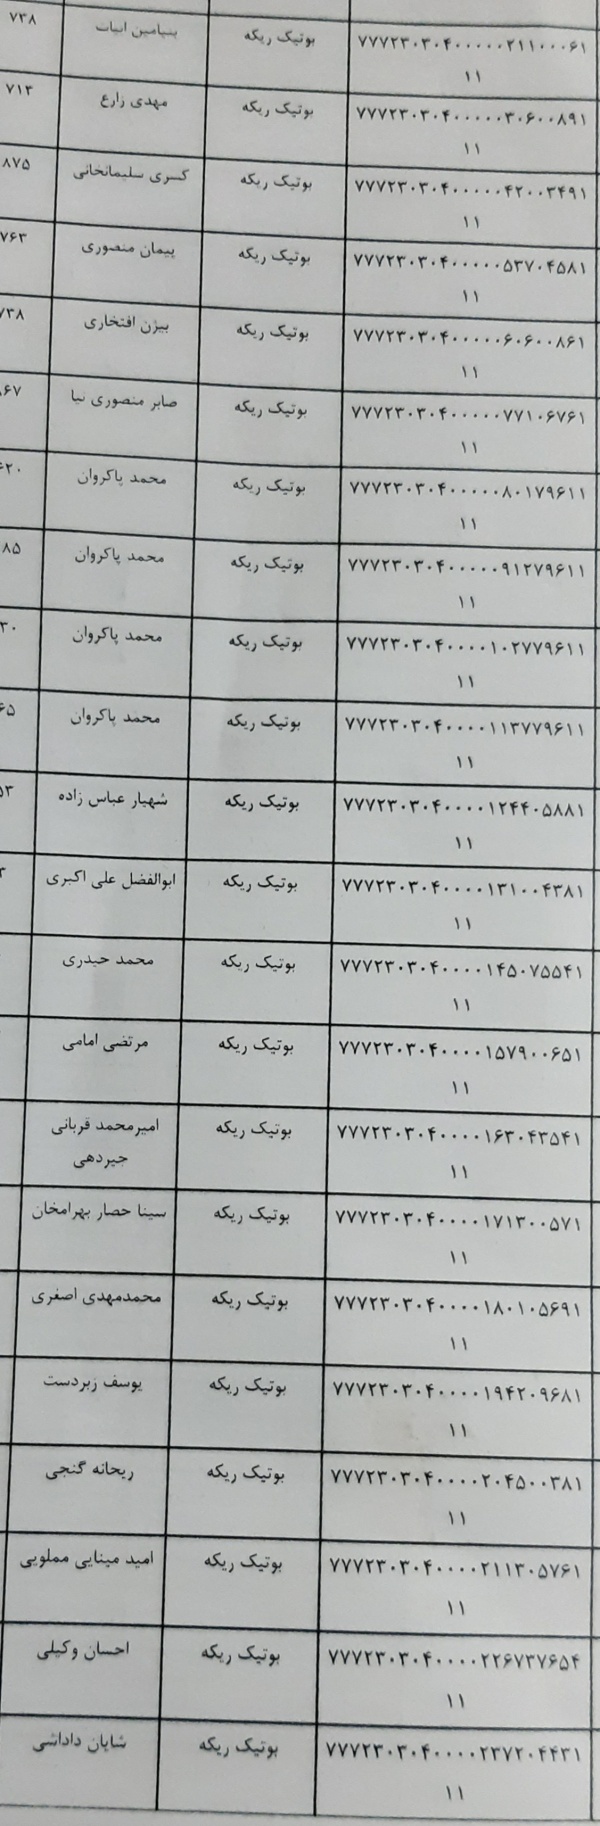 ۷۷۷۲۳۰۳۰۴۰۰۰۰۰۲۱۱۰۰۰۶۱ بوتیک ریکه بنیامین ابیات ۷۳۸
۱۱
۷۷۷۲۳۰۳۰۴۰۰۰۰۰۳۰۶۰۰۸۹۱ بوتیک ریکه مهدی زارع ۷۱۳
۱۱
۷۷۷۲۳۰۳۰۴۰۰۰۰۰۴۲۰۰۳۴۹۱ بوتیک ریکه کسری سلیمانخانی ۸۷۵
۱۱
۷۷۷۲۳۰۳۰۴۰۰۰۰۰۵۳۷۰۴۵۸۱ بوتیک ریکه پیمان منصوری ۷۶۳
۱۱
۷۷۷۲۳۰۳۰۴۰۰۰۰۰۶۰۶۰۰۸۶۱ بوتیک ریکه بیژن افتخاری ۷۳۸
۱۱
۷۷۷۲۳۰۳۰۴۰۰۰۰۰۷۷۱۰۶۷۶۱ بوتیک ریکه صابر منصوری نیا ۶۷
۱۱
۷۷۷۲۳۰۳۰۴۰۰۰۰۰۸۰۱۷۹۶۱۱ بوتیک ریکه محمد پاکروان ۲۰
۱۱
۷۷۷۲۳۰۳۰۴۰۰۰۰۰۹۱۲۷۹۶۱۱ بوتیک ریکه محمد پاکروان ۸۵
۱۱
۷۷۷۲۳۰۳۰۴۰۰۰۰۱۰۲۷۷۹۶۱۱ بوتیک ریکه محمد پاکروان ۳۰
۱۱
۷۷۷۲۳۰۳۰۴۰۰۰۰۱۱۳۷۷۹۶۱۱ بوتیک ریکه محمد پاکروان ۶۵
۱۱
۷۷۷۲۳۰۳۰۴۰۰۰۰۱۲۴۴۰۵۸۸۱ بوتیک ریکه شهیار عباس زاده ۵۳
۱۱
۷۷۷۲۳۰۳۰۴۰۰۰۰۱۳۱۰۰۴۳۸۱ بوتیک ریکه ابوالفضل علی اکبری
۱۱
۷۷۷۲۳۰۳۰۴۰۰۰۰۱۴۵۰۷۵۵۴۱ بوتیک ریکه محمد حیدری
۱۱
۷۷۷۲۳۰۳۰۴۰۰۰۰۱۵۷۹۰۰۶۵۱ بوتیک ریکه مرتضی امامی
۱۱
۷۷۷۲۳۰۳۰۴۰۰۰۰۱۶۳۰۴۳۵۴۱ بوتیک ریکه امیرمحمد قربانی
۱۱ جیردهی
۷۷۷۲۳۰۳۰۴۰۰۰۰۱۷۱۳۰۰۵۷۱ بوتیک ریکه سینا حصار بهرامخان
۱۱
۷۷۷۲۳۰۳۰۴۰۰۰۰۱۸۰۱۰۵۶۹۱ بوتیک ریکه محمدمهدی اصغری
۱۱
۷۷۷۲۳۰۳۰۴۰۰۰۰۱۹۴۲۰۹۶۸۱ بوتیک ریکه یوسف زبردست
۱۱
۷۷۷۲۳۰۳۰۴۰۰۰۰۲۰۴۵۰۰۳۸۱ بوتیک ریکه ریحانه گنجی
۱۱
۷۷۷۲۳۰۳۰۴۰۰۰۰۲۱۱۳۰۵۷۶۱ بوتیک ریکه امید مینایی مملویی
۱۱
۷۷۷۲۳۰۳۰۴۰۰۰۰۲۲۶۷۳۷۶۵۴ بوتیک ریکه احسان وکیلی
۱۱
۷۷۷۲۳۰۳۰۴۰۰۰۰۲۳۷۲۰۴۴۳۱ بوتیک ریکه شایان داداشی
۱۱